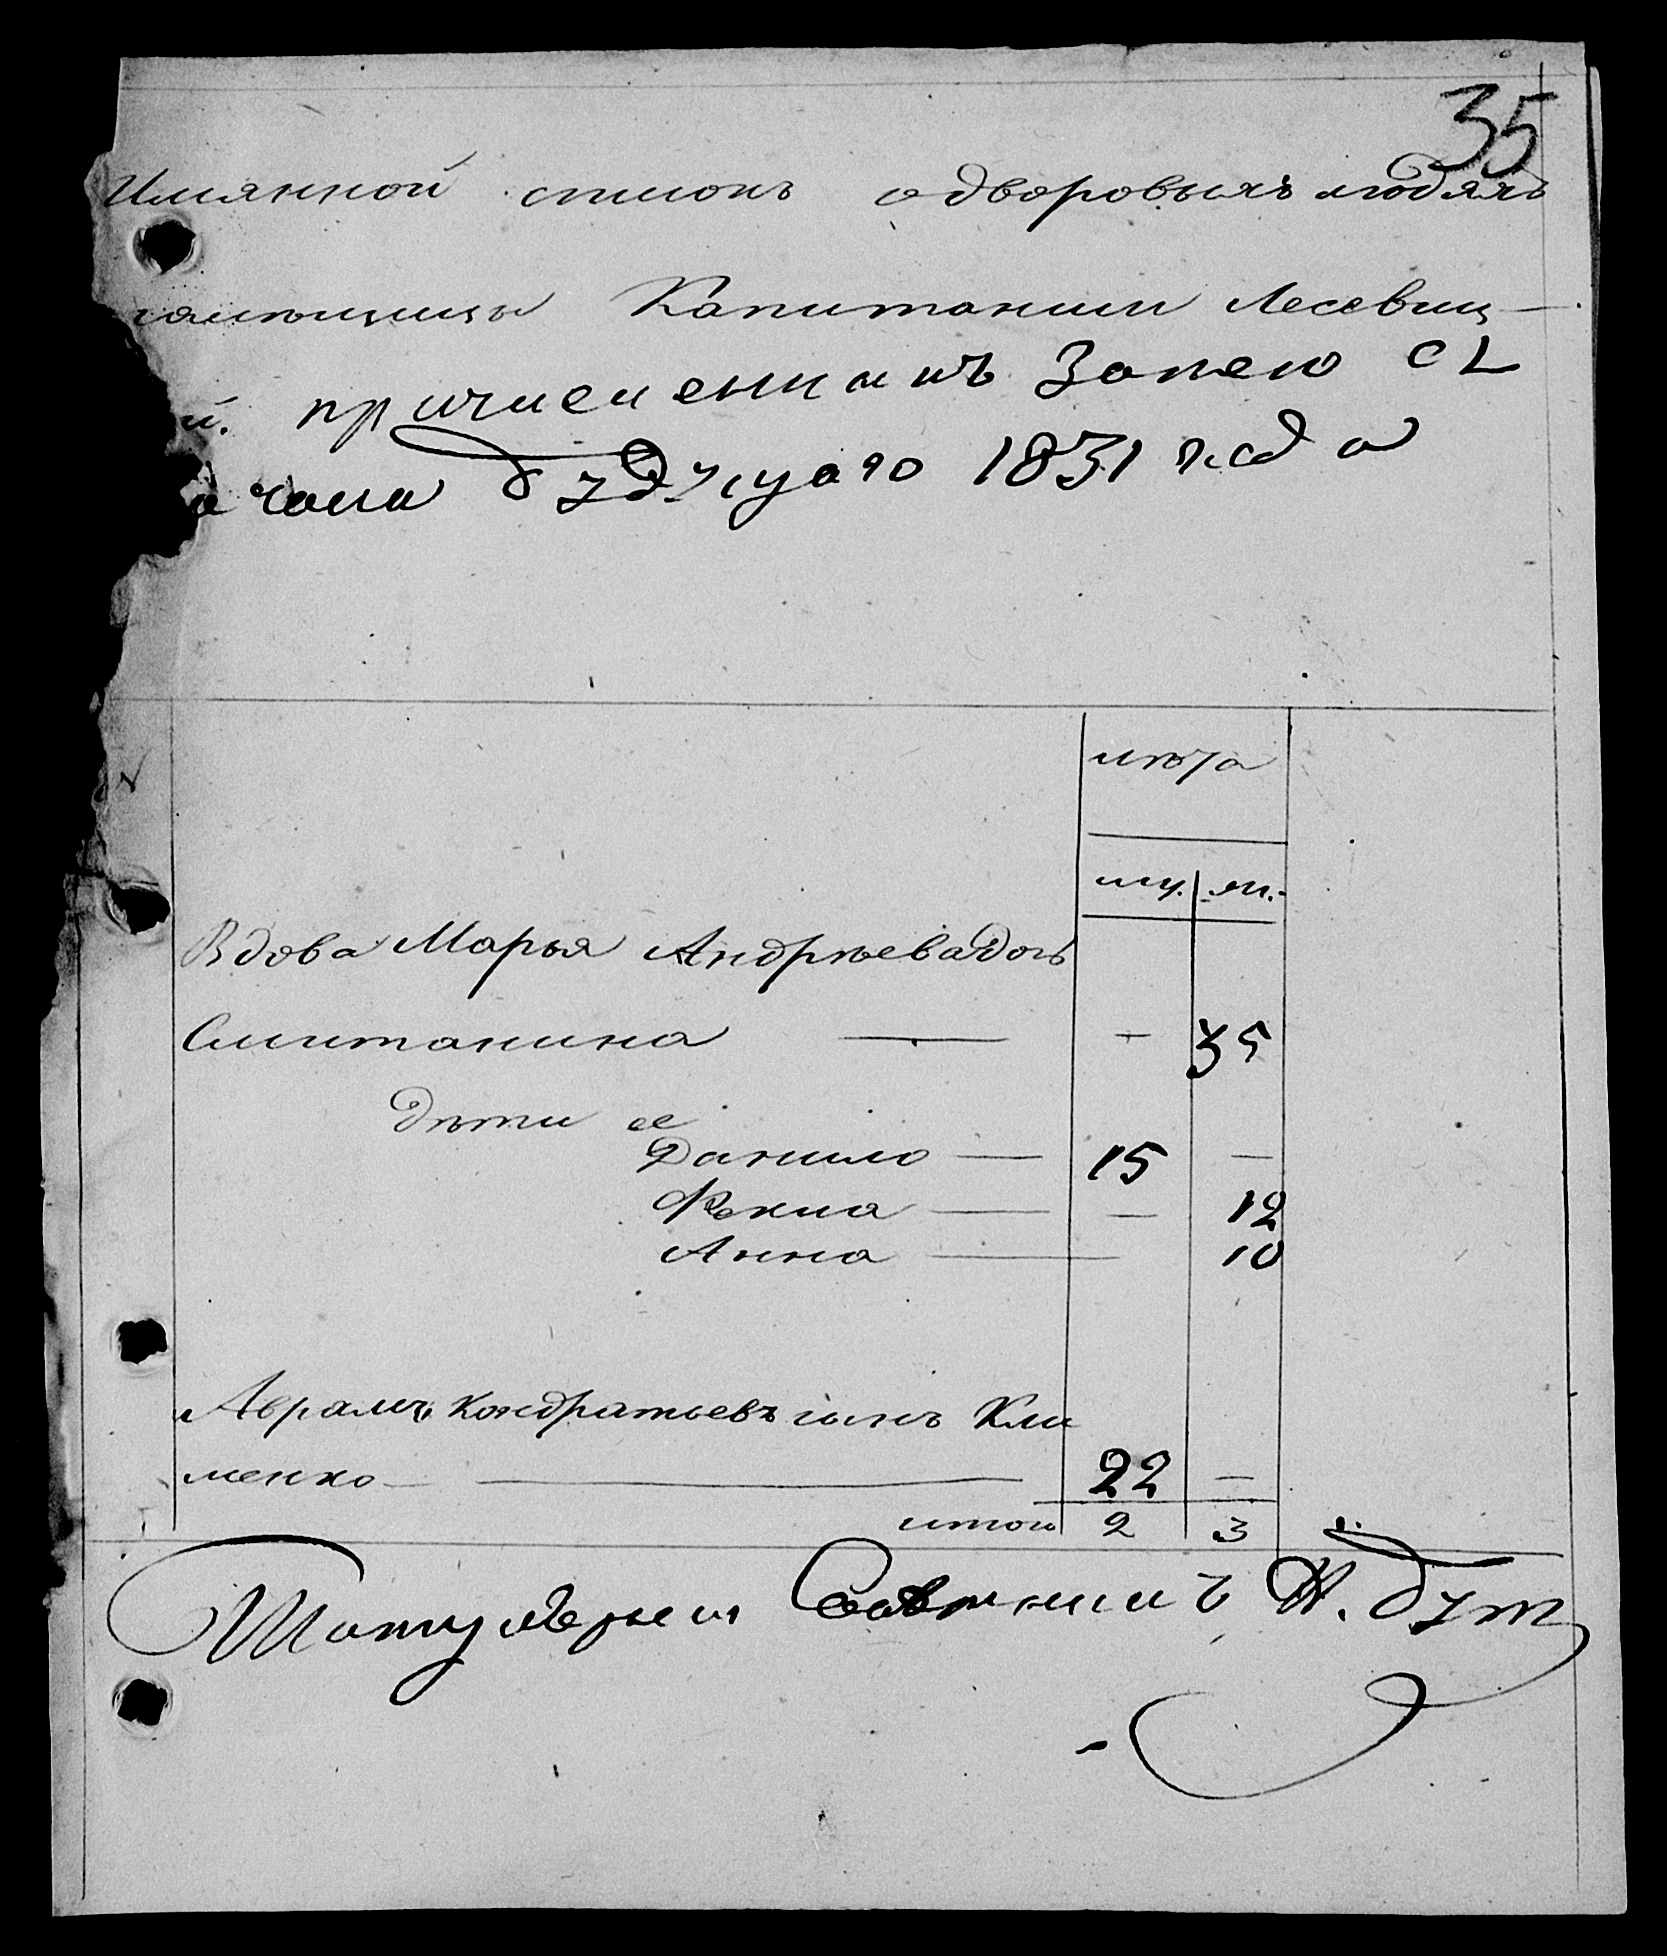 35
Имянной списокъ одворовыхъ людяхъ
помѣщицы Капитанши Лесевиц
й. причисленнихъ Зопею съ
начала будущаго 1831 года
лѣта
му. ж.
Вдова Марья Андрѣева дочь
Смитанина — — 35
дѣти ее
Данило — 15 —
Фекла — — 12
Анна — 10
Аврамъ Кондратьевъ сынъ Кли
менко — 22 —
итого 2 3
Титулярный Советникъ